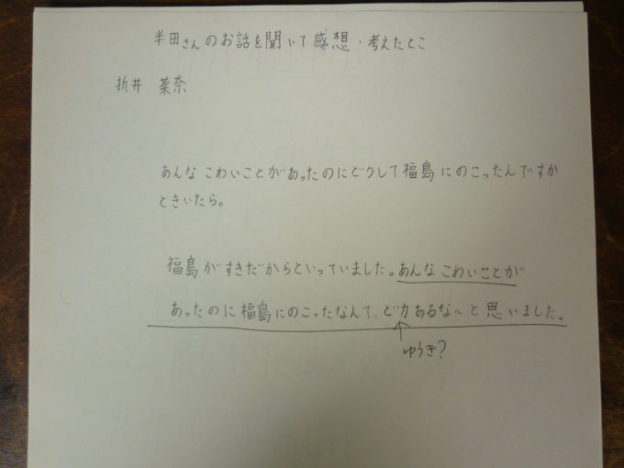 半田さんのお話を聞いて感想・考えたとこ
折井 菜奈
あんなこわいことがあったのにどうして福島にのこったんですか
ときいたら。
福島がすきだからといっていました。あんなこわいことが
あったのに福島にのこったなんて、ど力あるなぁと思いました。
ゆうき?